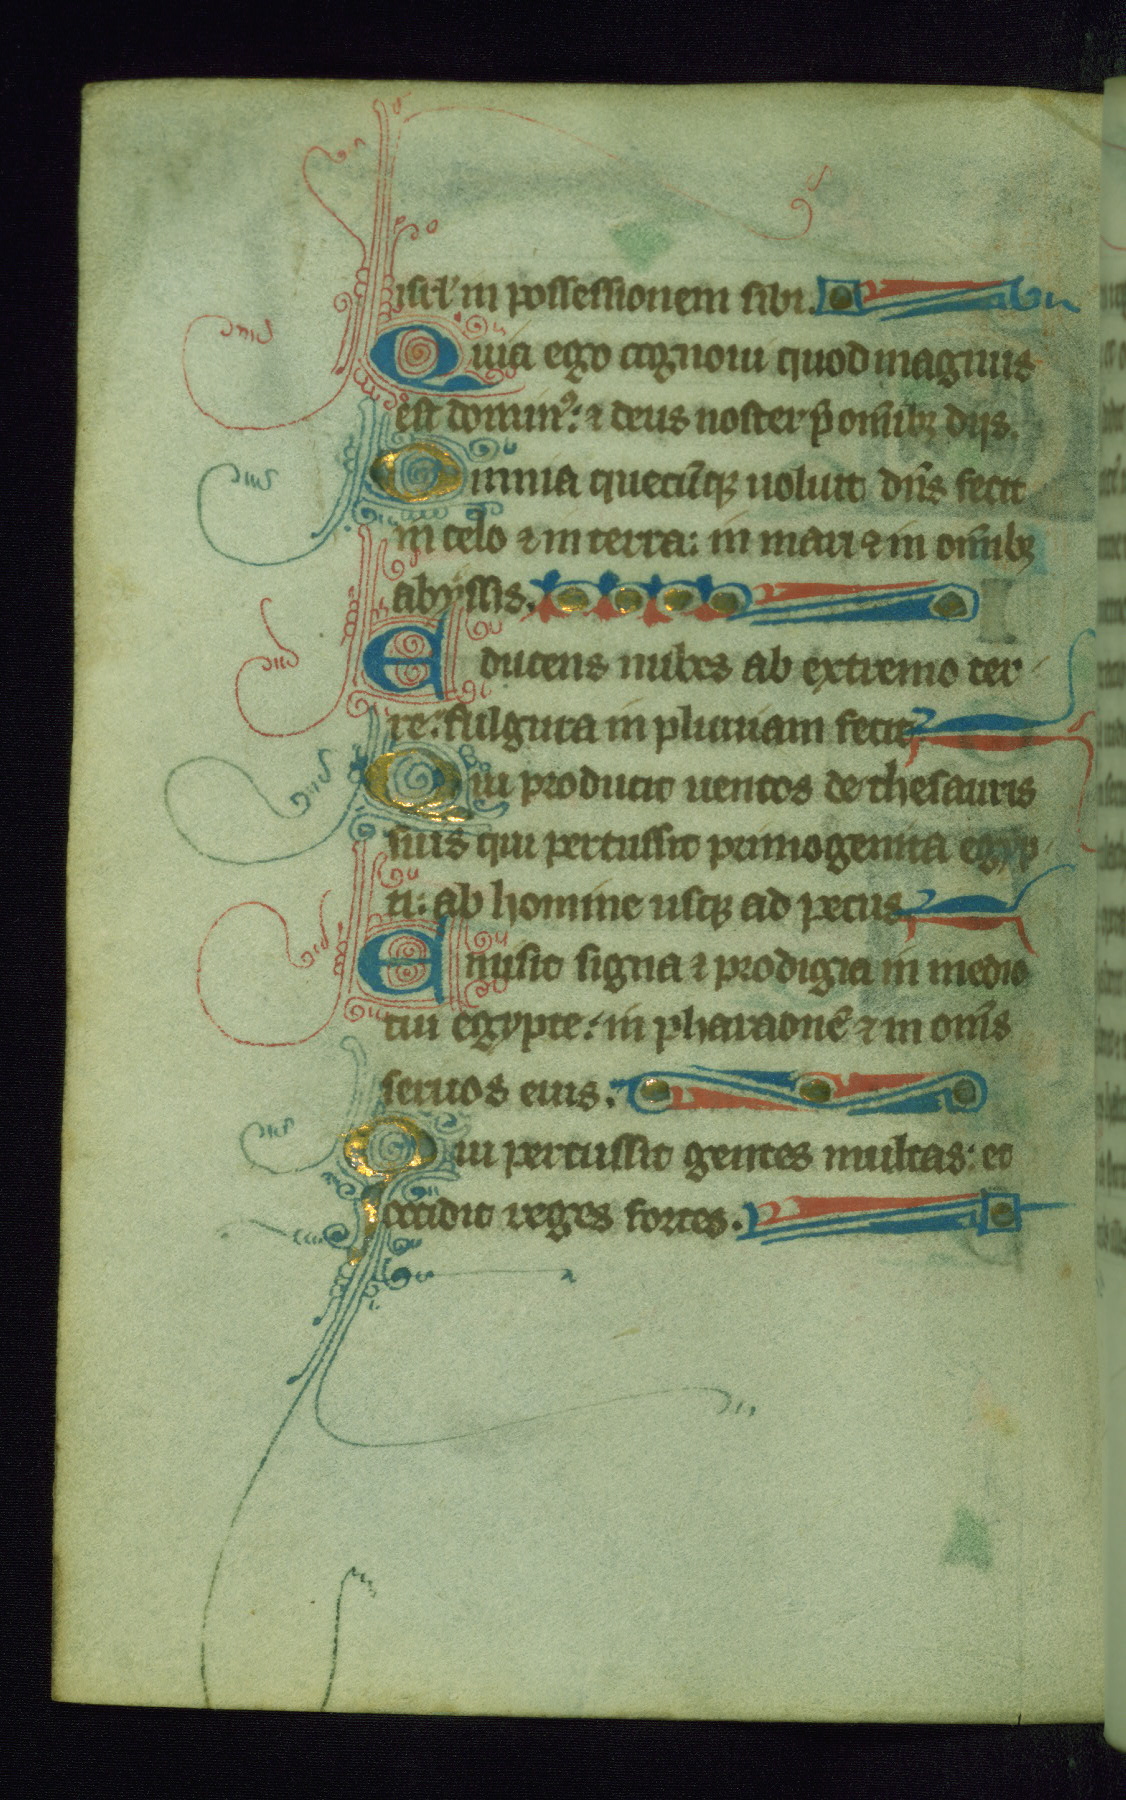 isrl' in possessionem sibi.
Quia ego cognoui quod magnus
est domin᷒: ⁊ deus noster p̄ om̄ibꝫ dijs.
Omnia quecūqꝫ uoluit dn̄s fecit
in celo ⁊ in terra: in mari ⁊ in om̄ibꝫ
abyssis.
Educens nubes ab extremo ter
re: fulgura in pluuiam fecit
Qui producit uentos de thesauris
suis qui percussit primogenita egyp
ti: ab homine usqꝫ ad pecus
Emisit signa ⁊ prodigia in medio
tui egypte: in pharaonē ⁊ in om̄s
seruos eius.
Qui percussit gentes multas: et
occidit reges fortes.